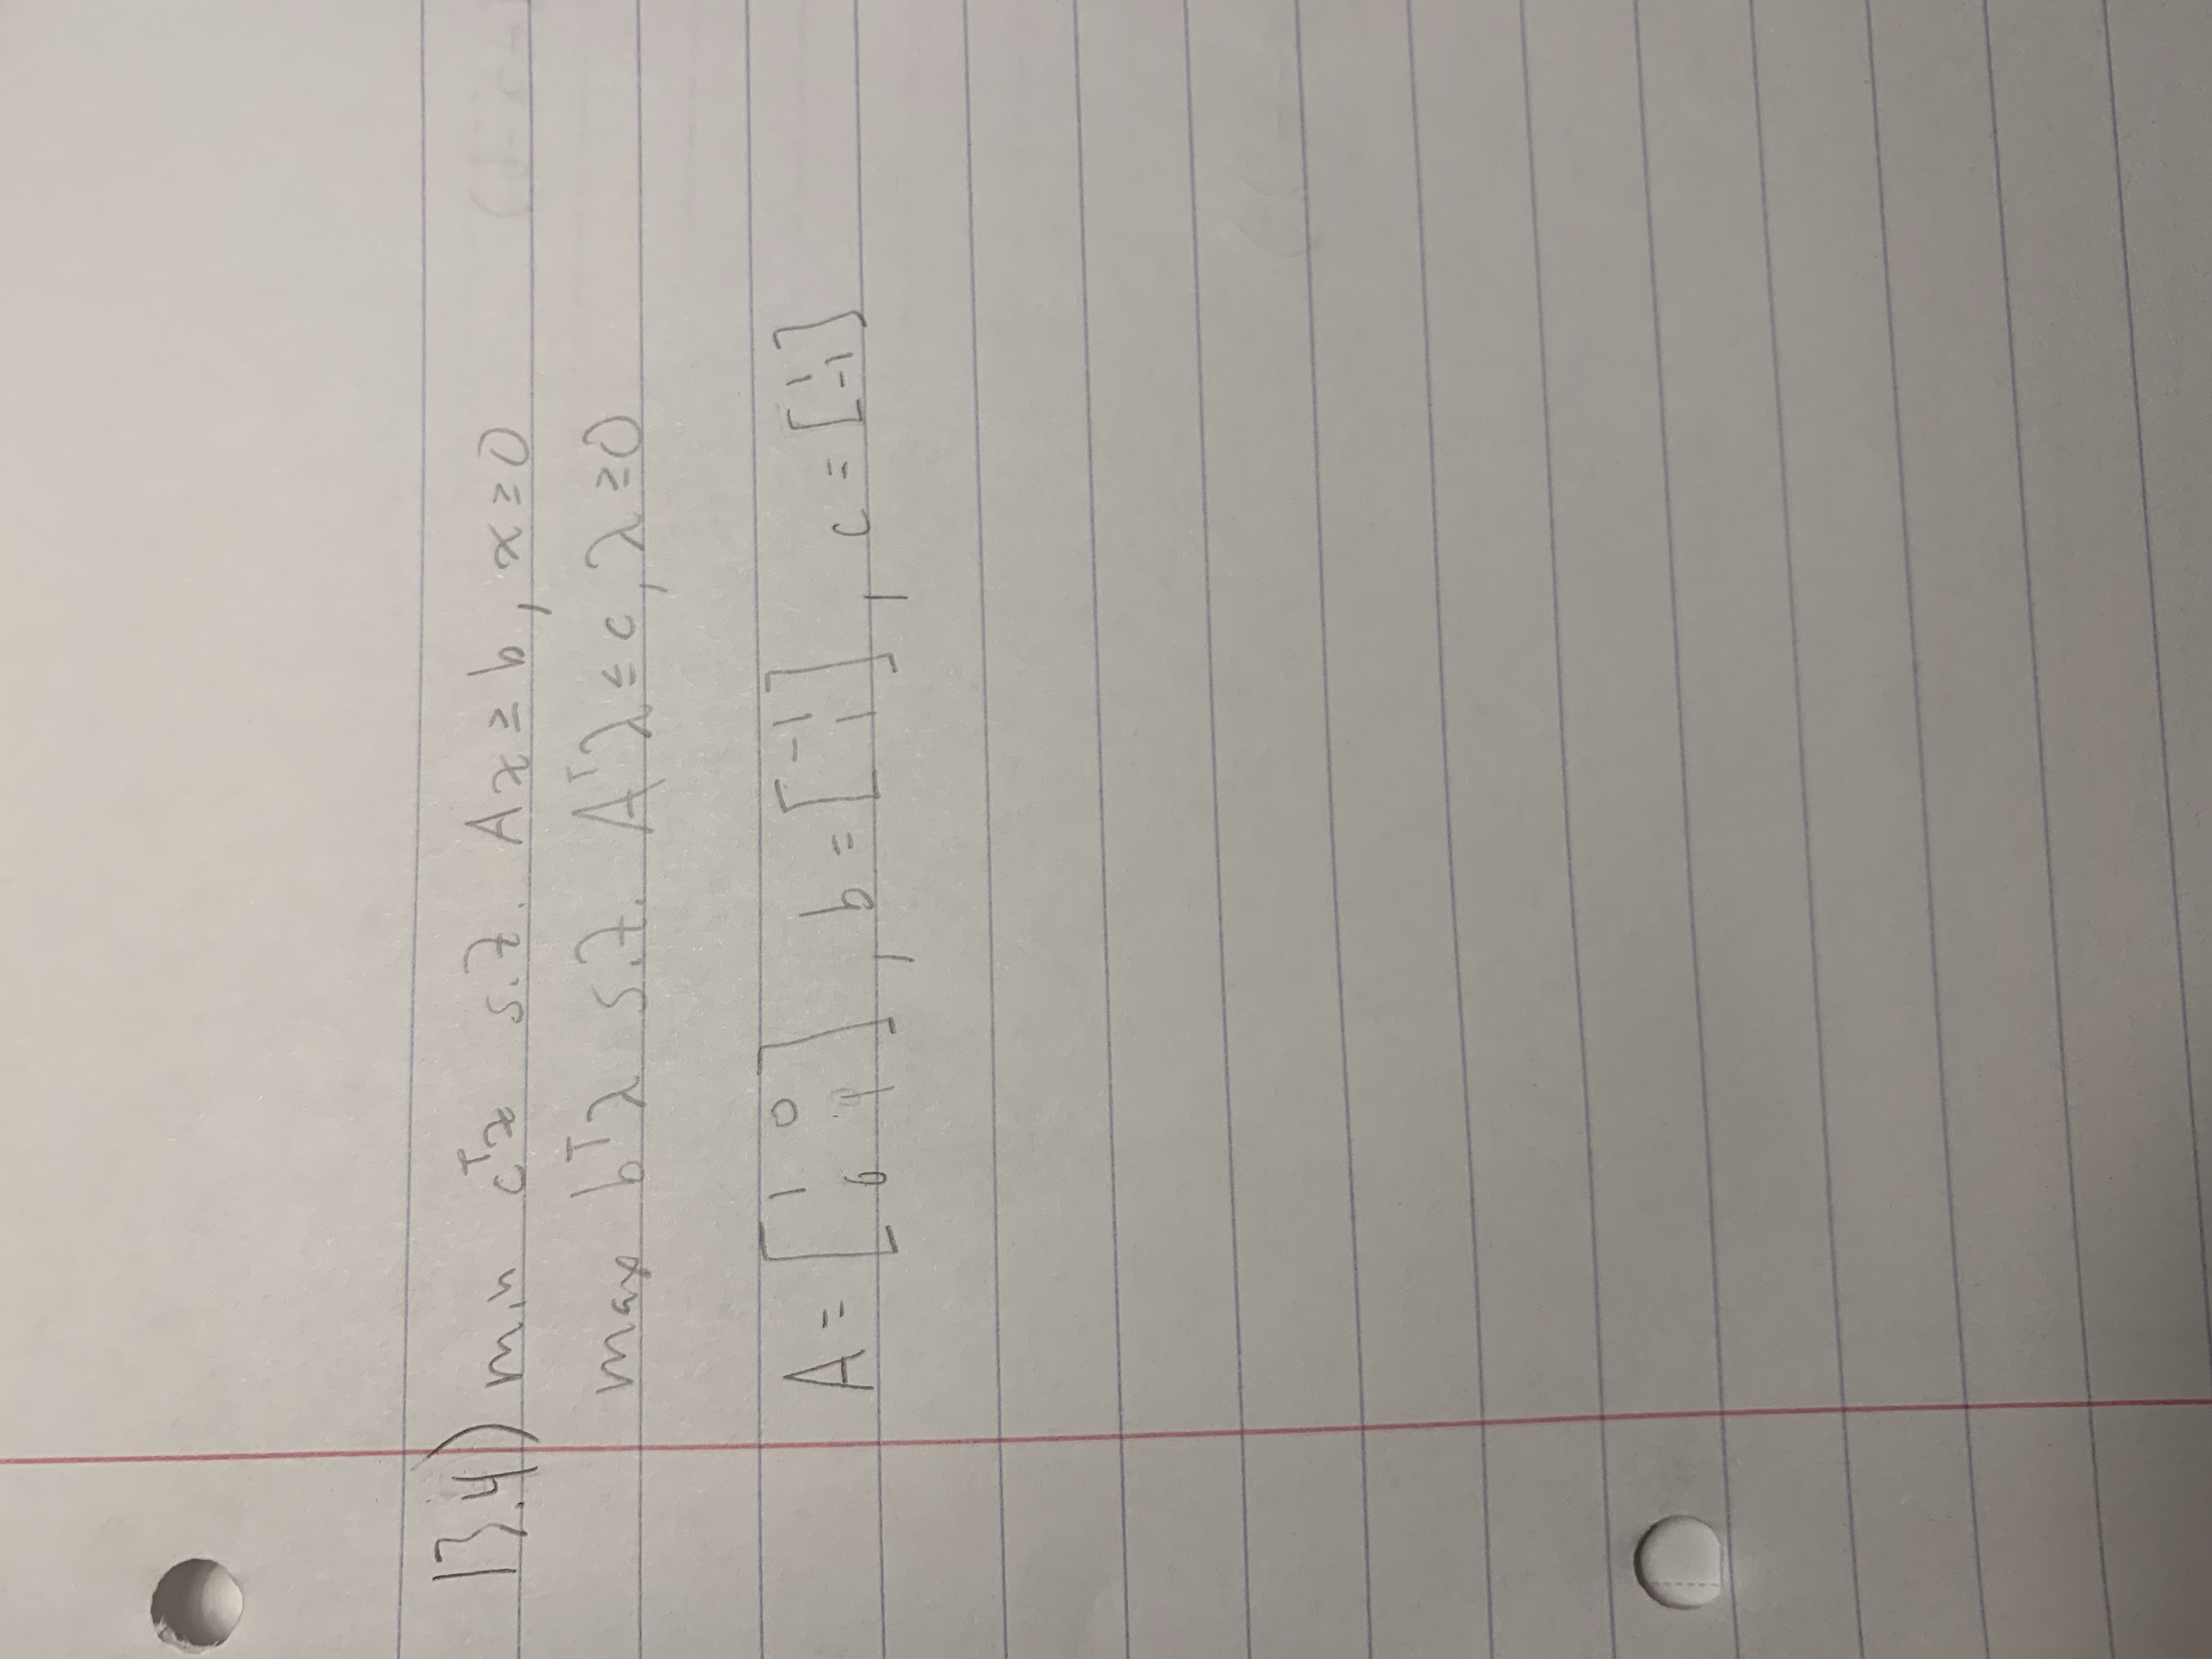 13.4) min cᵀx s.t. Ax ≥ b, x ≥ 0
max bᵀλ s.t. Aᵀλ ≤ c, λ ≥ 0
A = [1 0; 0 1], b = [-1; 1], c = [1; -1]